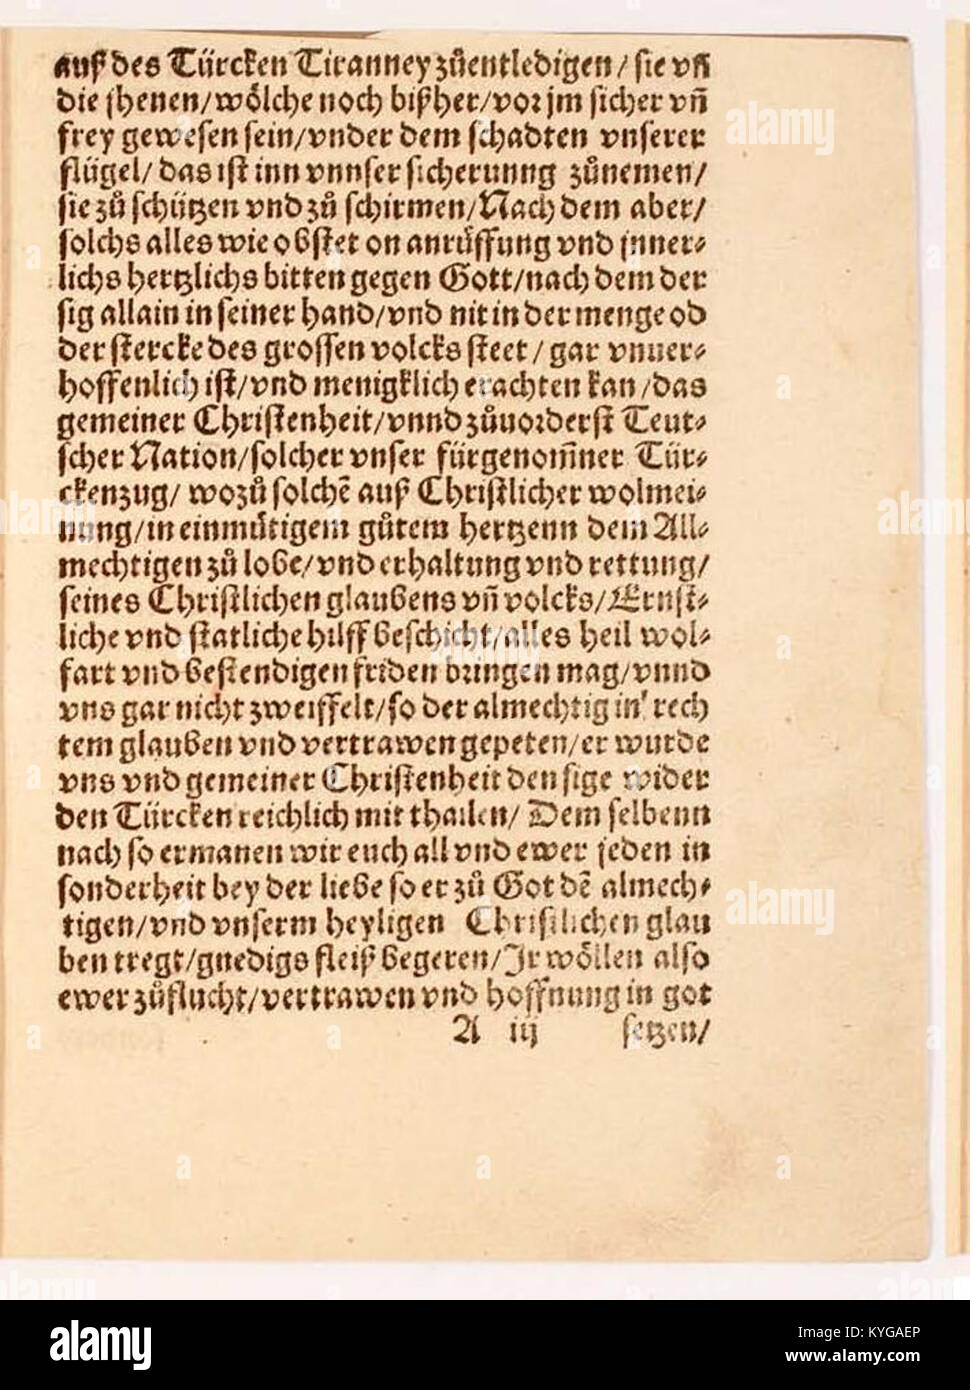 auß des Türcken Tiranney zůentledigen / sie vñ
die jhenen/wölche noch bißher/vor jm sicher vñ
frey gewesen sein/vnder dem schadten vnserer
flügel/das ist inn vnnser sicherunng zůnemen/
sie zů schützen vnd zů schirmen/Nach dem aber/
solchs alles wie obstet on anrüffung vnd jnner⸗
lichs hertzlichs bitten gegen Gott/nach dem der
sig allain in seiner hand/vnd nit in der menge od
der stercke des grossen volcks steet / gar vnuer⸗
hoffenlich ist/vnd menigklich erachten kan/das
gemeiner Christenheit/vnnd zůuorderst Teut⸗
scher Nation/solcher vnser fürgenom̃ner Tür⸗
ckenzug/ wozů solchẽ auß Christlicher wolmei⸗
nung/in einmütigem gůtem hertzenn dem All⸗
mechtigen zů lobe/vnd erhaltung vnd rettung/
seines Christlichen glaubens vñ volcks/Ernst⸗
liche vnd statliche hilff beschicht/alles heil wol⸗
fart vnd bestendigen friden bringen mag/vnnd
vns gar nicht zweiffelt/so der almechtig in' rech
tem glauben vnd vertrawen gepeten/er wurde
vns vnd gemeiner Christenheit den sige wider
den Türcken reichlich mit thailen/ Dem selbenn
nach so ermanen wir euch all vnd ewer jeden in
sonderheit bey der liebe so er zů Got dẽ almech⸗
tigen/vnd vnserm heyligen Christlichen glau
ben tregt/gnedigs fleiß begeren/Jr wöllen also
ewer zůflucht/vertrawen vnd hoffnung in got
A iij setzen/
alamy
KYGAEP
www.alamy.com